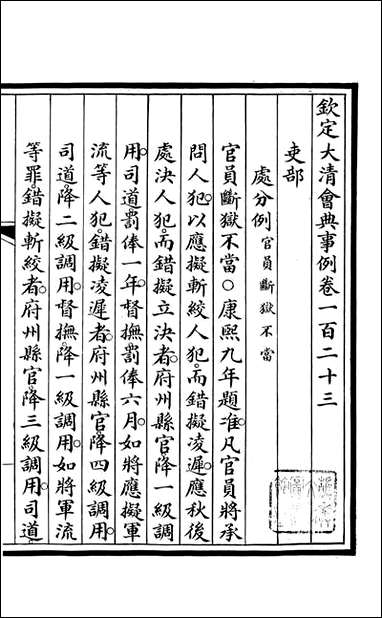 欽定大清會典事例卷一百二十三
吏部
處分例官員斷獄不當
官員斷獄不當○康熙九年題准凡官員將承
問人犯以應擬斬絞人犯而錯擬凌遲應秋後
處決人犯而錯擬立決者府州縣官降一級調
用司道罰俸一年督撫罰俸六月如將應擬軍
流等人犯錯擬凌遲者府州縣官降四級調用
司道降二級調用督撫降一級調用如將軍流
等罪錯擬斬絞者府州縣官降三級調用司道